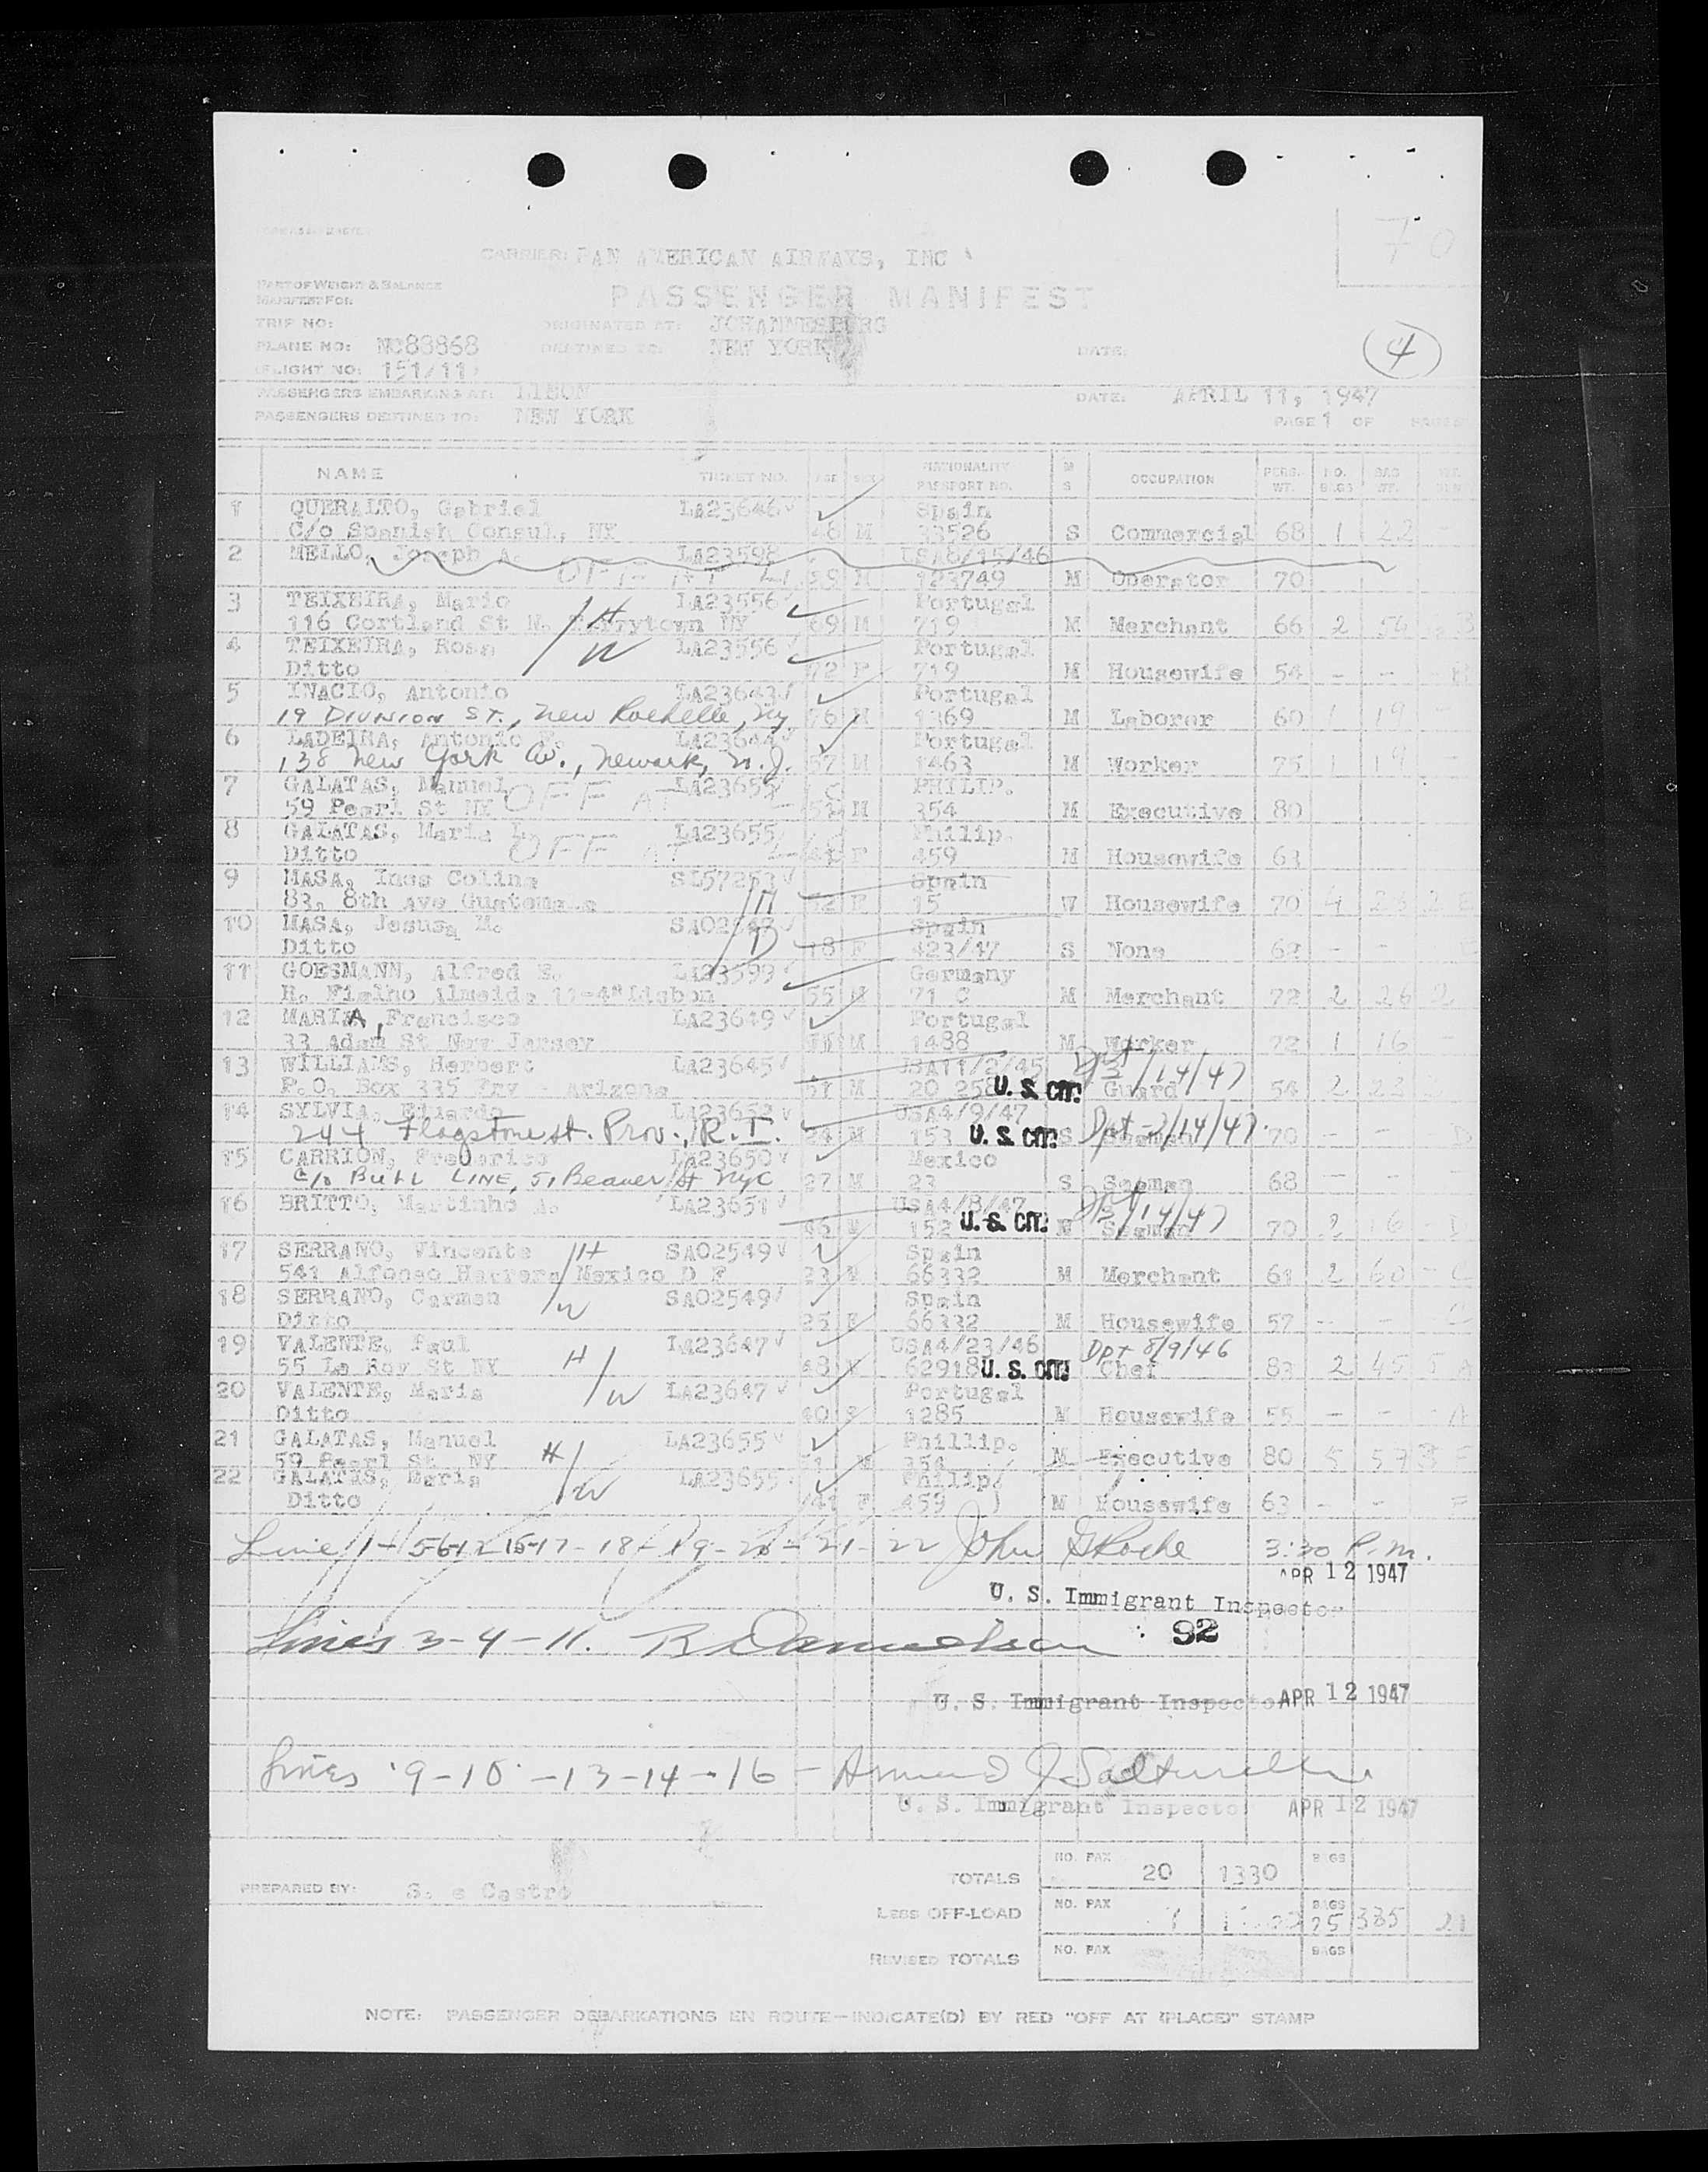 70
CARRIER: PAN AMERICAN AIRWAYS, INC
PART OF WEIGHT & BALANCE
MANIFEST FOR
PASSENGER MANIFEST
TRIP NO: ORIGINATED AT: JOHANNESBURG
PLANE NO: NC88868 DESTINED TO: NEW YORK DATE: 4
FLIGHT NO: 151/11
PASSENGERS EMBARKING AT: LISBON DATE: APRIL 11, 1947
PASSENGERS DESTINED TO: NEW YORK PAGE 1 OF PAGES
NAME TICKET NO. AGE SEX NATIONALITY PASSPORT NO. M S OCCUPATION PERS. WT. NO. BAGS BAG WT.
1 QUERALTO, Gabriel LA23646 Spain
C/o Spanish Consul, NY 48 M 33526 S Commercial 68 1 22
2 MELLO, Joseph A. LA23598 USA8/15/46
OFF AT 39 M 123749 M Operator 70
3 TEIXEIRA, Mario H LA23556 Portugal
116 Cortland St N. Tarrytown NY 69 M 719 M Merchant 66 2 56
4 TEIXEIRA, Rosa W LA23556 Portugal
Ditto 72 F 719 M Housewife 54 - -
5 INACIO, Antonio LA23643 Portugal
19 DIVISION ST., New Rochelle, NY 76 M 1369 M Laborer 60 1 19
6 LADEIRA, Antonio F. LA23644 Portugal
138 New York Av., Newark, N.J. 57 M 1463 M Worker 75 1 19
7 GALATAS, Manuel OFF AT LA23655 PHILIP.
59 Pearl St NY 51 M 354 M Executive 80
8 GALATAS, Maria L. LA23655 Philip.
Ditto OFF AT 41 F 459 M Housewife 63
9 MASA, Ines Colina SL57253 Spain
83, 8th Ave Guatemala H 52 F 15 W Housewife 70 4
10 MASA, Jesusa M. SA02548 Spain
Ditto D 18 F 423/47 S None 62 - -
11 GOESMANN, Alfred E. LA23599 Germany
R. Fialho Almeida 11-4" Lisbon 55 M 71 C M Merchant 72 2 26 2
12 MARIA, Francisco LA23649 Portugal
33 Adam St New Jersey M 1488 M Worker 72 1 16
13 WILLIAMS, Herbert LA23645 USA11/2/45 Dpt 3/14/47
P.O. Box 335 Fry - Arizona 51 M 20 258 U. S. CIT. Guard 54 2 22
14 SYLVIA, Eduardo LA23652 USA4/9/47
244 Flagstone st. Prov., R.I. 24 M 153 U. S. CIT. S Dpt 3/14/47 Seaman 70 - -
15 CARRION, Frederico LA23650 Mexico
c/o BULL LINE, 51 Beaver St NYC 27 M 23 S Seaman 68 - -
16 BRITTO, Martinho A. LA23651 USA4/8/47 Dpt 3/14/47
46 M 152 U. S. CIT. M Seaman 70 2 16
17 SERRANO, Vincente H SA02549 Spain
541 Alfonso Herrera Mexico D F 33 M 66332 M Merchant 61 2 60 - C
18 SERRANO, Carmen W SA02549 Spain
Ditto 25 F 66332 M Housewife 57 - - C
19 VALENTE, Paul H LA23647 USA4/23/46 Dpt 8/9/46
55 Le Roy St NY 48 M 62918 U. S. CIT. Chef 83 2 45 5 A
20 VALENTE, Maria W LA23647 Portugal
Ditto 40 F 1285 M Housewife 55 - - - A
21 GALATAS, Manuel H LA23655 Phillip.
59 Pearl St NY 51 M 354 M Executive 80 5 57 3 F
22 GALATAS, Maria W LA23655 Philip.
Ditto 41 F 459 M Housewife 63 - - F
Line 1-5-6-12-15-17-18-19-20-21-22 John G Roche 3:30 P.m.
APR 12 1947
U. S. Immigrant Inspector
92
Lines 3-4-11. R Danielson
U. S. Immigrant Inspector APR 12 1947
Lines 9-10-13-14-16- Armand J. Salturelli
U. S. Immigrant Inspector APR 12 1947
TOTALS NO. PAX 20 1330 BAGS
PREPARED BY: S. e Castro
LESS OFF-LOAD NO. PAX BAGS 25 385 21
REVISED TOTALS NO. PAX BAGS
NOTE: PASSENGER DEBARKATIONS EN ROUTE—INDICATE(D) BY RED "OFF AT (PLACE)" STAMP